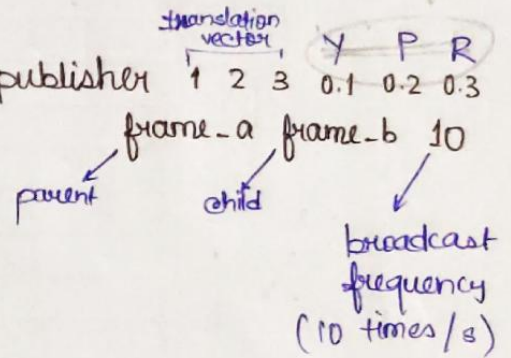 translation
vector
Y P R
publisher 1 2 3 0.1 0.2 0.3
frame_a frame_b 10
parent child
broadcast
frequency
(10 times/s)